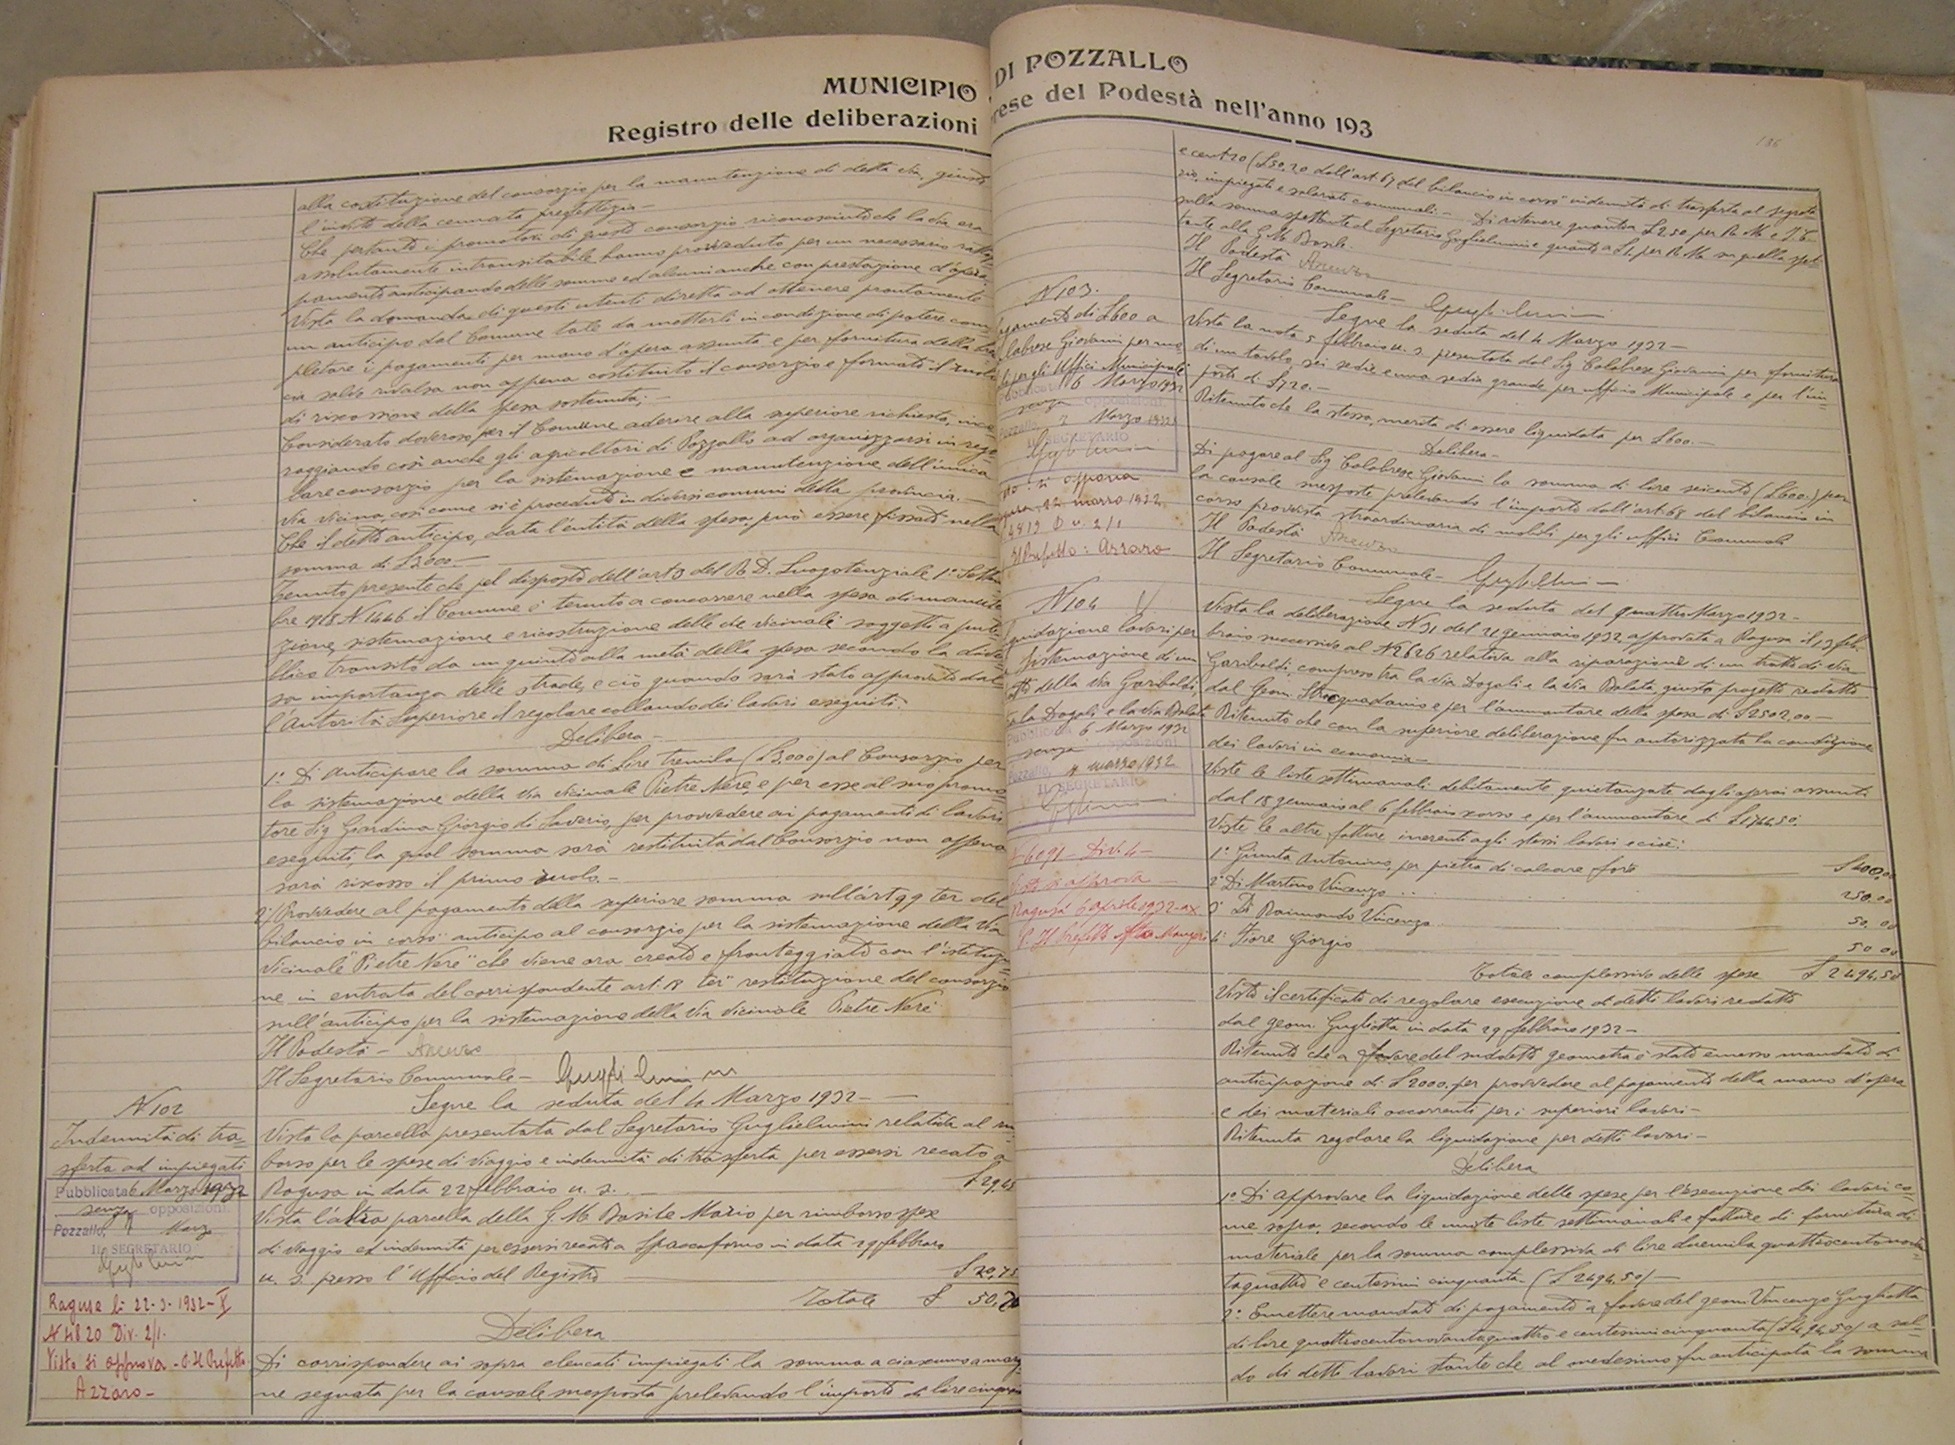 MUNICIPIO DI POZZALLO
Registro delle deliberazioni prese del Podestà nell'anno 193
alla costituzione del consorzio per la manutenzione di detta via, giusta
l'invito della cennata prefettizia—
Che pertanto i promotori di questo consorzio riconosciuto che la via era
assolutamente intransitabile hanno provveduto per un necessario
anticipando delle somme ed alcuni anche con prestazione d'opera
Vista la domanda di questi utenti diretta ad ottenere prontamente
un anticipo dal Comune tale da metterli in condizione di potere com
pletare i pagamenti per mano d'opera assunta e per fornitura della
salvo rivalsa non appena costituito il consorzio e formato il ruolo
di riscossione della spesa sostenuta;—
Considerato doveroso per il Comune aderire alla superiore richiesta, inco
raggiando così anche gli agricoltori di Pozzallo ad organizzarsi in rego
lare consorzio per la sistemazione e manutenzione dell'unica
via vicina, così come si è proceduto in diversi comuni della provincia.—
Che il detto anticipo, data l'entità della spesa, può essere fissato nella
somma di £3000—
Tenuto presente che pel disposto dell'art 3 del R. D. Luogotenziale 1° Settem
bre 1918 N 1446 il Comune è tenuto a concorrere nella spesa di manuten
zione, sistemazione e ricostruzione delle vie vicinali soggette a pub
blico transito da un quinto alla metà della spesa secondo la diver
sa importanza delle strade, e ciò quando sarà stato approvato dal
l'Autorità Superiore il regolare collaudo dei lavori eseguiti.
Delibera—
1° Di anticipare la somma di Lire tremila (£3,000) al Consorzio per
la sistemazione della via vicinale Pietre Nere, e per esse al suo promo
tore Sig Giardina Giorgio di Saverio, per provvedere ai pagamenti di lavori
eseguiti, la qual somma sarà restituita dal Consorzio non appena
sarà riscosso il primo ruolo.—
2°) Provvedere al pagamento della superiore somma sull'art 99 ter del
bilancio in corso "anticipo al consorzio per la sistemazione della Via
Vicinale "Pietre Nere" che viene ora creato e fronteggiato con l'istituzio
ne in entrata del corrispondente art. 18 ter "restituzione del consorzio
sull'anticipo per la sistemazione della Via vicinale Pietre Nere
Il Podestà—
Il Segretario Comunale— Guglielmini
Segue la seduta del 4 Marzo 1932—
N 102
Indennità di tra
sferta ad impiegati
Pubblicata 6 Marzo 1932
senza opposizioni.
Pozzallo, Marzo
IL SEGRETARIO
Guglielmini
Ragusa li 22-3-1932-X
N 4820 Div. 2/1.
Visto si approva - p. Il Prefetto
Azzaro—
Vista la parcella presentata dal Segretario Guglielmini relativa al rim
borso per le spese di viaggio e indennità di trasferta per essersi recato a
Ragusa in data 22 febbraio u. s. — £29,45
Vista l'altra parcella della G. M. Basile Mario per rimborso spese
di viaggio ed indennità per essersi recato a Spaccaforno in data 29 febbraio
u. s. presso l'Ufficio del Registro — £20,75
Totale £ 50,20
Delibera
Di corrispondere ai sopra elencati impiegati la somma a ciascuno a margi
ne segnata per la causale suesposta prelevando l'importo di lire cinquanta
e cent 20 (£50,20 dall'art. 67 del bilancio in corso "indennità di trasferta al segreta
rio, impiegati e salariati comunali.— Di ritenere quanto a £2.50 per R. M. e I. C.
sulla somma spettante al Segretario Guglielmini e quanto a £1, per R. M. su quella spet
tante alla G. M. Basile.
Il Podestà
Il Segretario Comunale— Guglielmini
Segue la seduta del 4 Marzo 1932—
N 103.
Pagamento di £600 a
Calabrese Giovanni per
per gli Uffici Municipali
6 Marzo 1932
senza opposizioni
Pozzallo, 7 Marzo 1932
IL SEGRETARIO
Guglielmini
Visto: si approva
Ragusa, 22 marzo 1932
4819 D v. 2/1
Il Prefetto: Azzaro
Vista la nota 5 febbraio u. s. presentata dal Sig Calabrese Giovanni per fornitura
di un tavolo, sei sedie e una sedia grande per ufficio Municipale e per l'im
porto di £720.—
Ritenuto che la stessa, merita di essere liquidata per £600.—
Delibera—
Di pagare al Sig Calabrese Giovanni la somma di lire seicento (£600.) per
la causale suesposta prelevando l'importo dall'art. 68 del bilancio in
corso provvista straordinaria di mobili per gli uffici Comunali
Il Podestà
Il Segretario Comunale— Guglielmini
Segue la seduta del quattro Marzo 1932—
N 104
Liquidazione lavori per
sistemazione di un
tratto della via Garibaldi,
tra la Dogali e la via Balata
Pubblicata 6 Marzo 1932
senza opposizioni
Pozzallo, 7 marzo 1932
IL SEGRETARIO
Guglielmini
N 6091 - Div. 4—
Visto si approva
Ragusa 6 aprile 1932-ax
p. Il Prefetto
Vista la deliberazione N 31 del 21 gennaio 1932 approvata a Ragusa il 13 feb
braio successivo al N 2626 relativa alla riparazione di un tratto di via
Garibaldi, compreso tra la via Dogali e la via Balata, giusta progetto redatto
dal Geom. Stracquadanio e per l'ammontare della spesa di £2502,00—
Ritenuto che con la superiore deliberazione fu autorizzata la conduzione
dei lavori in economia—
Viste le liste settimanali debitamente quietanzate dagli operai assunti
dal 18 gennaio al 6 febbraio scorso e per l'ammontare di £1744,50.
Viste le altre fatture inerenti agli stessi lavori e cioè:
1° Giunta Antonino, per pietra di calcare forte £400,00
2° Di Martino Vincenzo 250,00
3° Di Raimondo Vincenzo 50,00
4° Fiore Giorgio 50 00
Totale complessivo delle spese £2494,50
Visto il certificato di regolare esecuzione di detti lavori redatto
dal geom. Gugliotta in data 29 febbraio 1932—
Ritenuto che a favore del suddetto geometra è stato emesso mandato di
anticipazione di £2000, per provvedere al pagamento della mano d'opera
e dei materiali occorrenti per i superiori lavori—
Ritenuta regolare la liquidazione per detti lavori—
Delibera
1° Di approvare la liquidazione delle spese per l'esecuzione dei lavori co
me sopra, secondo le unite liste settimanali e fatture di fornitura di
materiale per la somma complessiva di lire duemila quattrocentonovan
taquattro e centesimi cinquanta (£2494,50)—
2° Emettere mandato di pagamento a favore del geom. Vincenzo Gugliotta
di lire quattrocentonovantaquattro e centesimi cinquanta (£494,50) a sal
do di detti lavori stante che al medesimo fu anticipata la somma